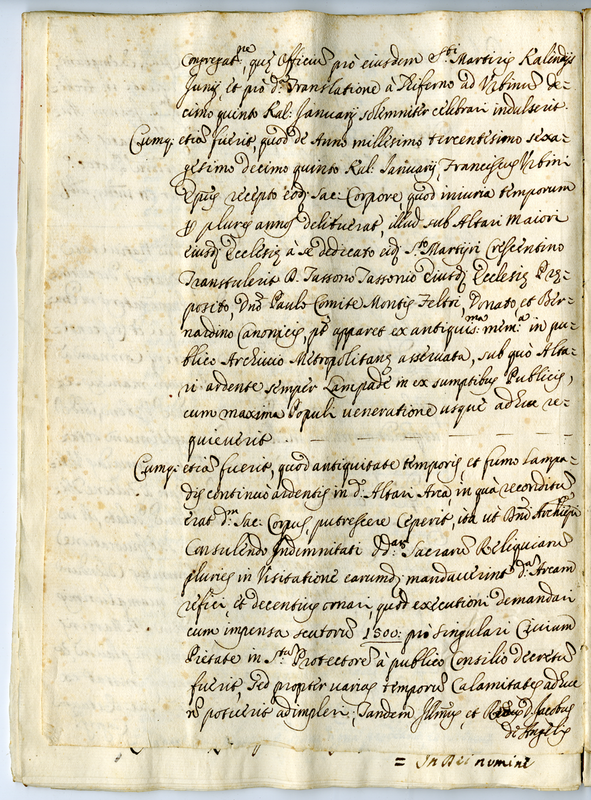 Congregat.ne que Officiũ prò eiusdem S.ti Martiris Kalendijs
Junij, et prò d.a Translatione à Tiferno ad Vrbinũ de=
cimo quinto Kal: Januarij solemnitèr celebrari indulserit.
Cumq; etiã fuerit, quod de Anno millesimo tercentesimo sexa=
gesimo decimo quinto Kal: Januarij Franciscus Vrbini
Epus recepto eod; Sac: Corpore, quod iniuria temporum
p plures annos delituerat, illud sub Altari Maiori
eiusd; Ecclesiæ à se dedicato eid; S.to Martyri Crescentino
Transtulerit D. Tassono Tassonio eiusd; Ecclesiæ Præ=
posito, Dno Paulo Comite Montis Feltri, Donato, et Ber=
nardino Canonicis, pt apparet ex antiquis:ma mem:a in pu=
blico Archivio Metropolitanæ asservata, sub quò Alta=
ri ardente semper Lampade in ex sumptibus Publicis,
cum maxima Populi veneratione usque adhuc re=
quieverit
Cumq; etiã fuerit, quod antiquitate temporis et fumo lampa=
dis continuò ardentis in d.o Altari Arca, in quà reconditũ
erat d.m Sac: Corpus, putrescere Ceperit, ita ut Archiepi
Consulendo Indemnitati Sacrarũ Reliquiarũ
pluries in Visitatione earumd; mandaverint d.a Arcam
refici, et decentius ornari, quod executioni demandari
cum impensa scutorũ 1300: prò singulari Civium
Pietate in S.tu Protectorẽ à publico Consilio decretũ
fuerit, sed propter varias temporũ Calamitates adhuc
nõ potuerit adimpleri; Tandem Illmus, et D. Jacobus
de Angelis
= In Dei nomine